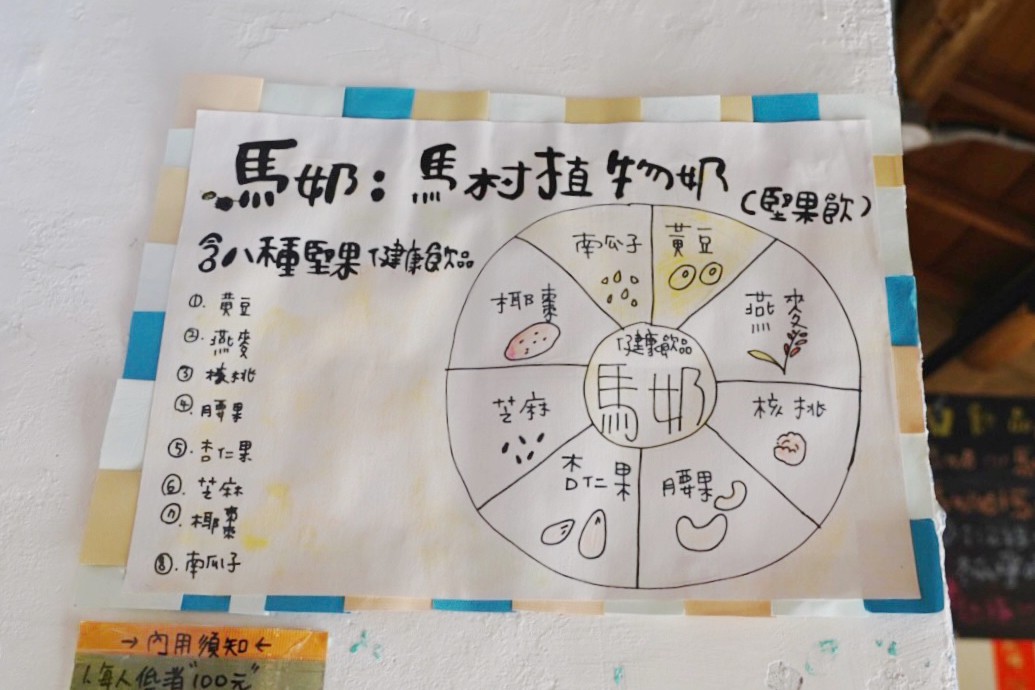 馬奶:馬村植物奶
(堅果飲)
含八種堅果健康飲品
①. 黃豆
②. 燕麥
③ 核桃
④. 腰果
⑤. 杏仁果
⑥. 芝麻
⑦. 椰棗
⑧. 南瓜子
南瓜子
黃豆
椰棗
燕麥
健康飲品
馬奶
芝麻
核桃
杏仁果
腰果
→內用須知←
1、每人低消"100元"